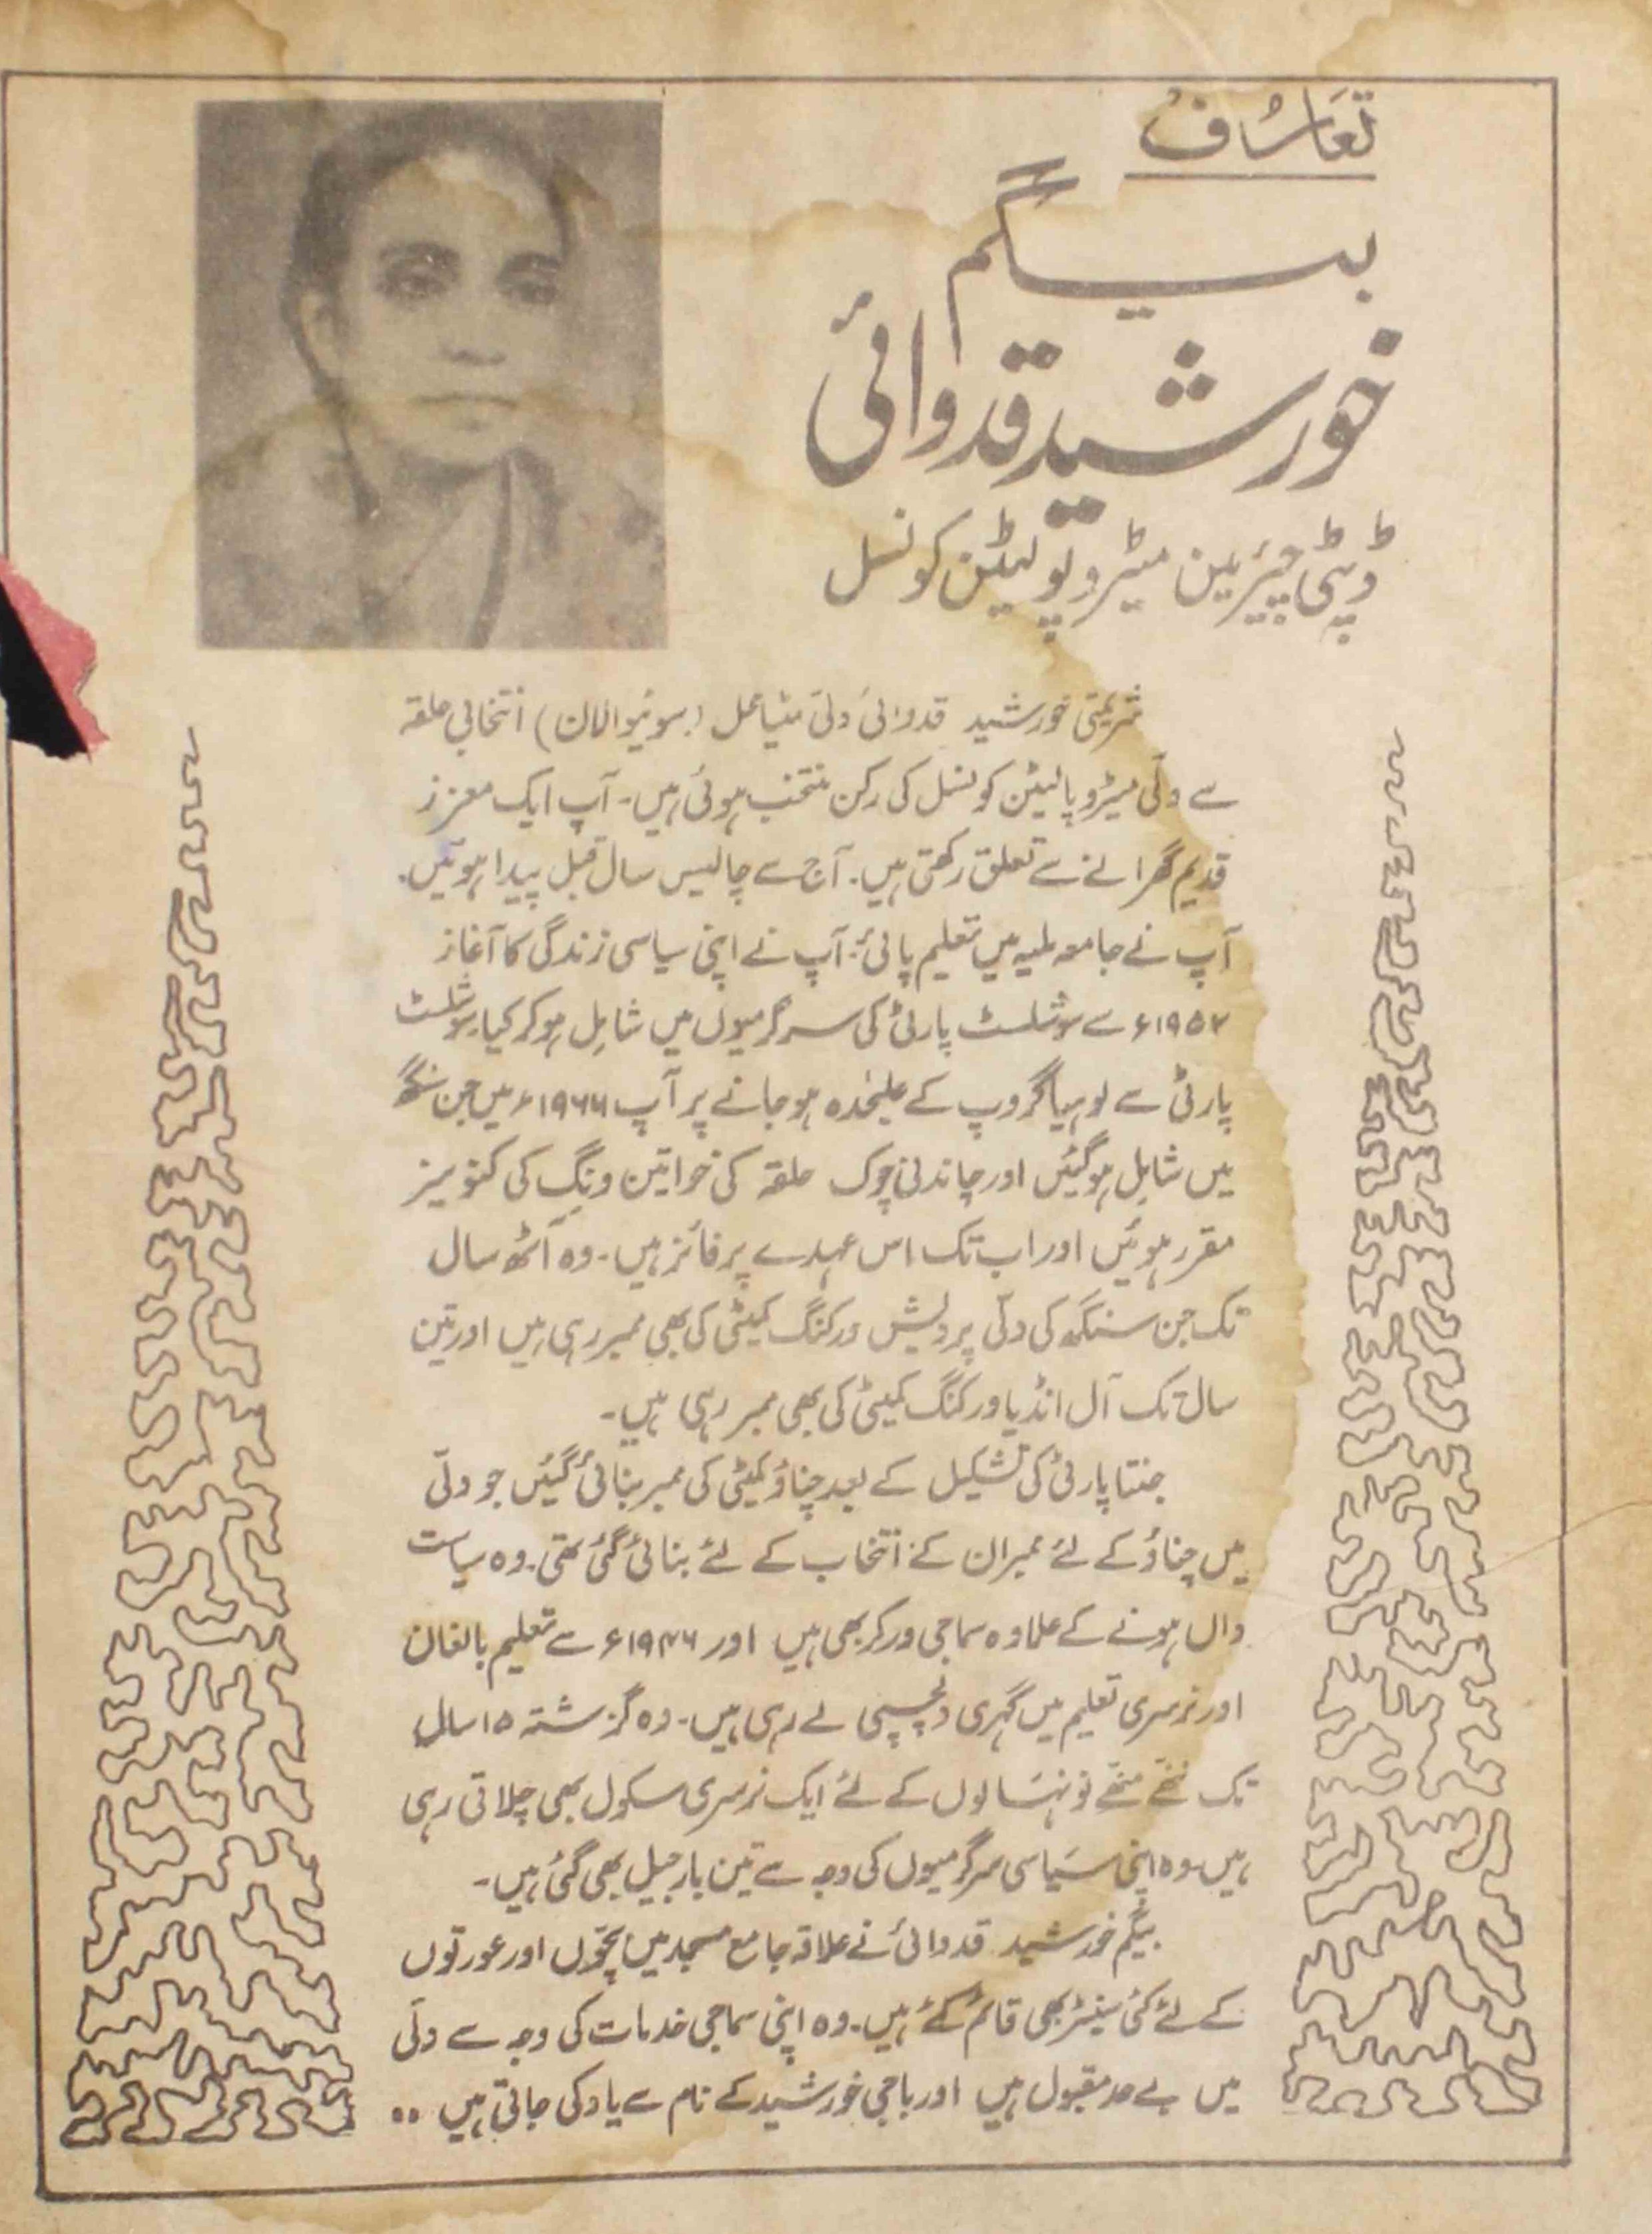 تعارف
بیگم
خورشید قدوائی
ڈپٹی چیئرمین میٹروپولیٹن کونسل
شریمتی خورشید قدوائی دلی مٹیا محل (سوئیوالان) انتخابی حلقہ
سے دلّی میٹروپالیٹن کونسل کی رکن منتخب ہوئی ہیں۔ آپ ایک معزز
قدیم گھرانے سے تعلق رکھتی ہیں۔ آج سے چالیس سال قبل پیدا ہوئیں۔
آپ نے جامعہ ملیہ میں تعلیم پائی۔ آپ نے اپنی سیاسی زندگی کا آغاز
۱۹۵۲ء سے سوشلسٹ پارٹی کی سرگرمیوں میں شامل ہوکر کیا۔ سوشلسٹ
پارٹی سے لوہیا گروپ کے علیحدہ ہو جانے پر آپ ۱۹۶۶ء میں جن سنگھ
میں شامل ہوگئیں اور چاندنی چوک حلقہ کی خواتین ونگ کی کنوینر
مقرر ہوئیں اور اب تک اس عہدے پر فائز ہیں۔ وہ آٹھ سال
تک جن سنگھ کی دلّی پردیش ورکنگ کمیٹی کی بھی ممبر رہی ہیں اور تین
سال تک آل انڈیا ورکنگ کمیٹی کی بھی ممبر رہی ہیں۔
جنتا پارٹی کی تشکیل کے بعد چناؤ کمیٹی کی ممبر بنائی گئیں جو دلّی
میں چناؤ کے لئے ممبران کے انتخاب کے لئے بنائی گئی تھی۔ وہ سیاست
داں ہونے کے علاوہ سماجی ورکر بھی ہیں اور ۱۹۴۶ء سے تعلیم بالغان
اور نرسری تعلیم میں گہری دلچسپی لے رہی ہیں۔ وہ گزشتہ ۱۵ سال
تک ننھے منھے نونہالوں کے لئے ایک نرسری سکول بھی چلاتی رہی
ہیں۔ وہ اپنی سیاسی سرگرمیوں کی وجہ سے تین بار جیل بھی گئی ہیں۔
بیگم خورشید قدوائی نے علاقہ جامع مسجد میں بچّوں اور عورتوں
کے لئے کئی سینٹر بھی قائم کئے ہیں۔ وہ اپنی سماجی خدمات کی وجہ سے دلّی
میں بے حد مقبول ہیں اور باجی خورشید کے نام سے یاد کی جاتی ہیں ••